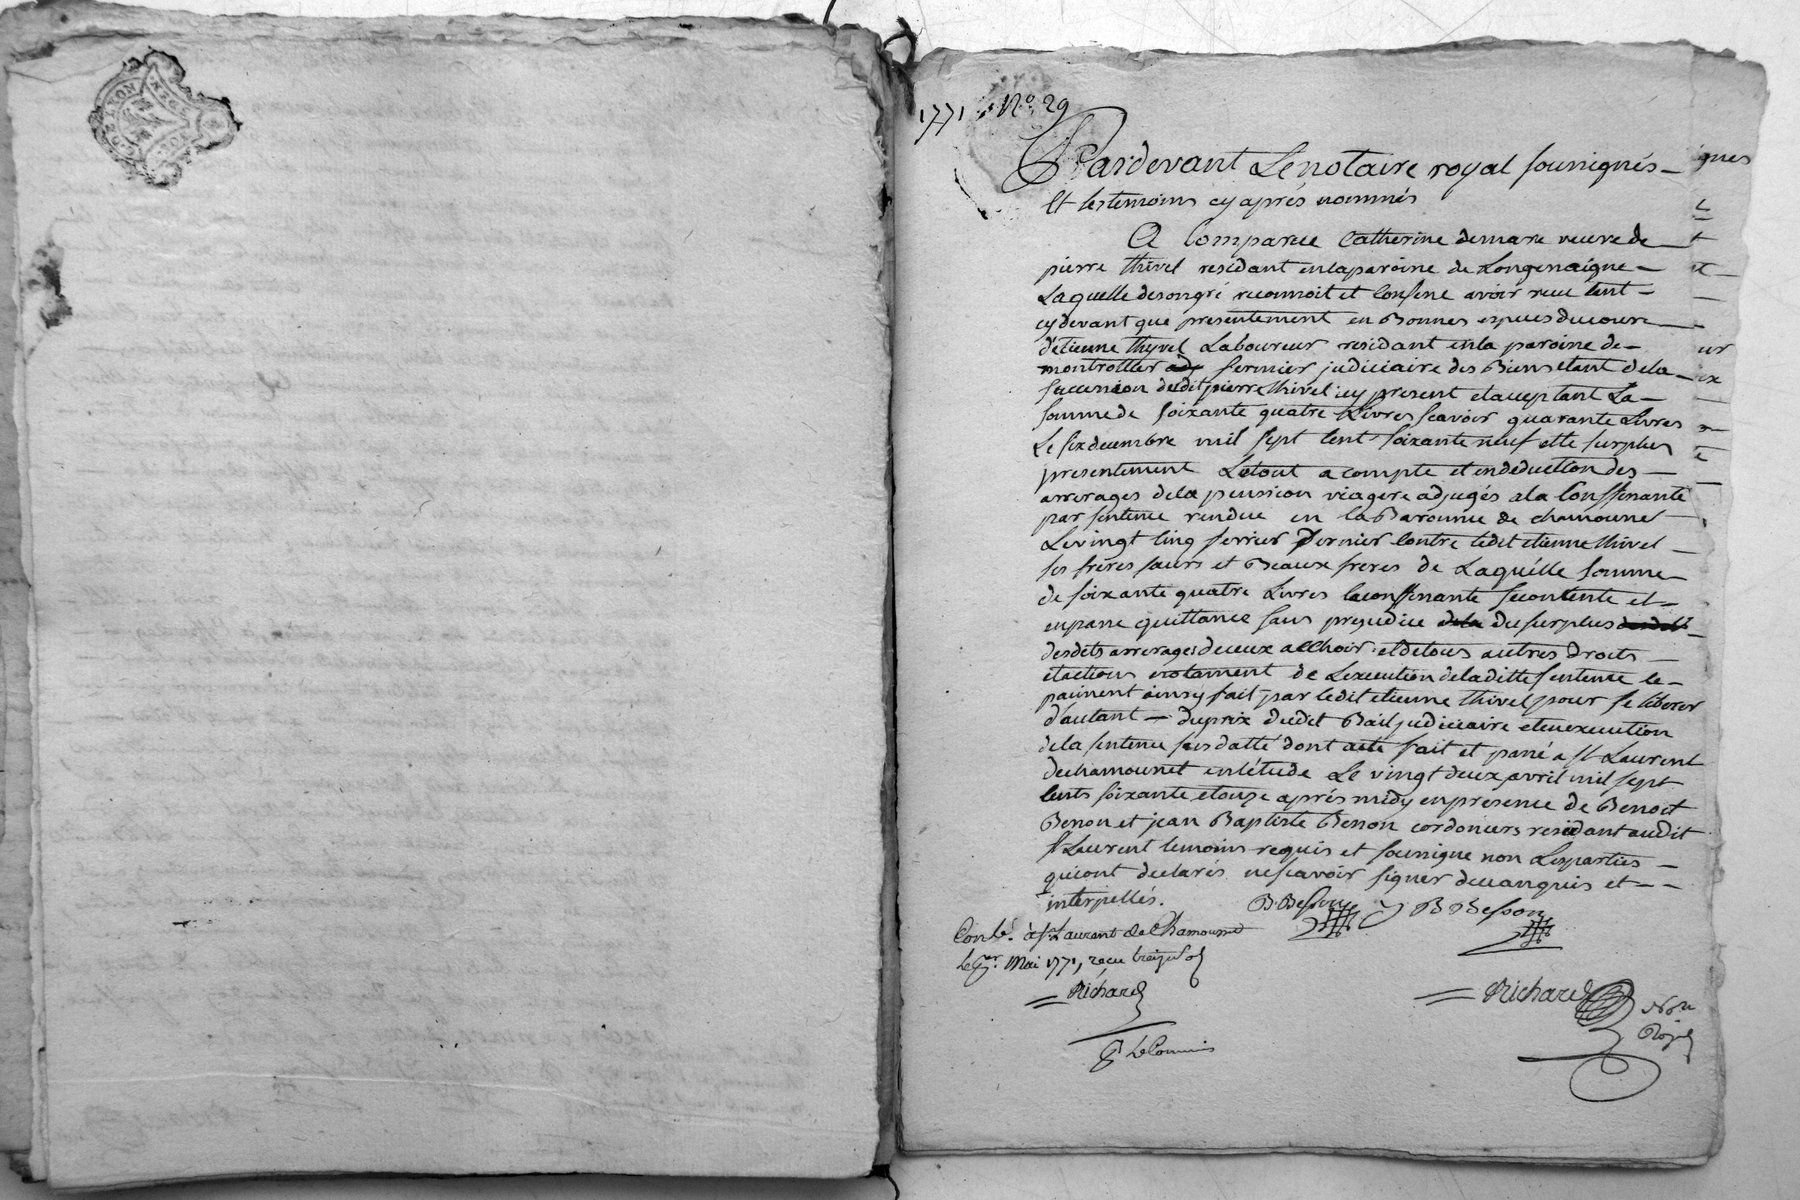 1771 N.º 29
Pardevant Le notaire royal soussignés
Et les temoins cy aprés nommés
A Comparue Catherine demare veuve de
pierre thivel residant en la paroisse de Longessaigne
Laquelle de son gré reconnoit et Confesse avoir receu tant
cy devant que presentement en Bonnes especes du cours
d'etienne thyvel Laboureur residant en la paroisse de
montrottier fermier judiciaire des Biens etant de la
succession dudit pierre thivel icy present et acceptant La
somme de soixante quatre Livres scavoir quarante Livres
Le six decembre mil sept cent soixante neuf et le surplus
presentement Le tout a compte et en deduction des
arrerages de la pension viagere adjugés a la Confessante
par sentence rendue en la Baronnie de chamounet
Le vingt cinq fevrier Dernier Contre ledit etienne thivel
ses freres sœurs et Beaux freres de Laquelle somme
de soixante quatre Livres la confessante se contente et
en passe quittance sans prejudice du surplus
desdits arrerages de ceux a Echoir et de tous autres Droits
et actions notament de L'execution de la ditte sentence le
paiment ainsy fait par ledit etienne thivel pour se liberer
d'autant du prix dudit Bail judiciaire et en execution
de la sentence sus datté dont acte fait et passé a st Laurent
de chamounet en l'étude Le vingt deux avril mil sept
Cents soixante et onze aprés midy en presence de Benoit
Besson et jean Baptiste Besson cordoniers residant audit
st Laurent temoins requis et soussigne non Les parties
qui ont declarés ne scavoir signer de ce enquis et
interpellés. B. Besson J B Besson
Con.lé à st Laurent de Chamousset
Le 1er. Mai 1771, recu treize sols
Richard Richard
Not.re
Royal
Le Commis